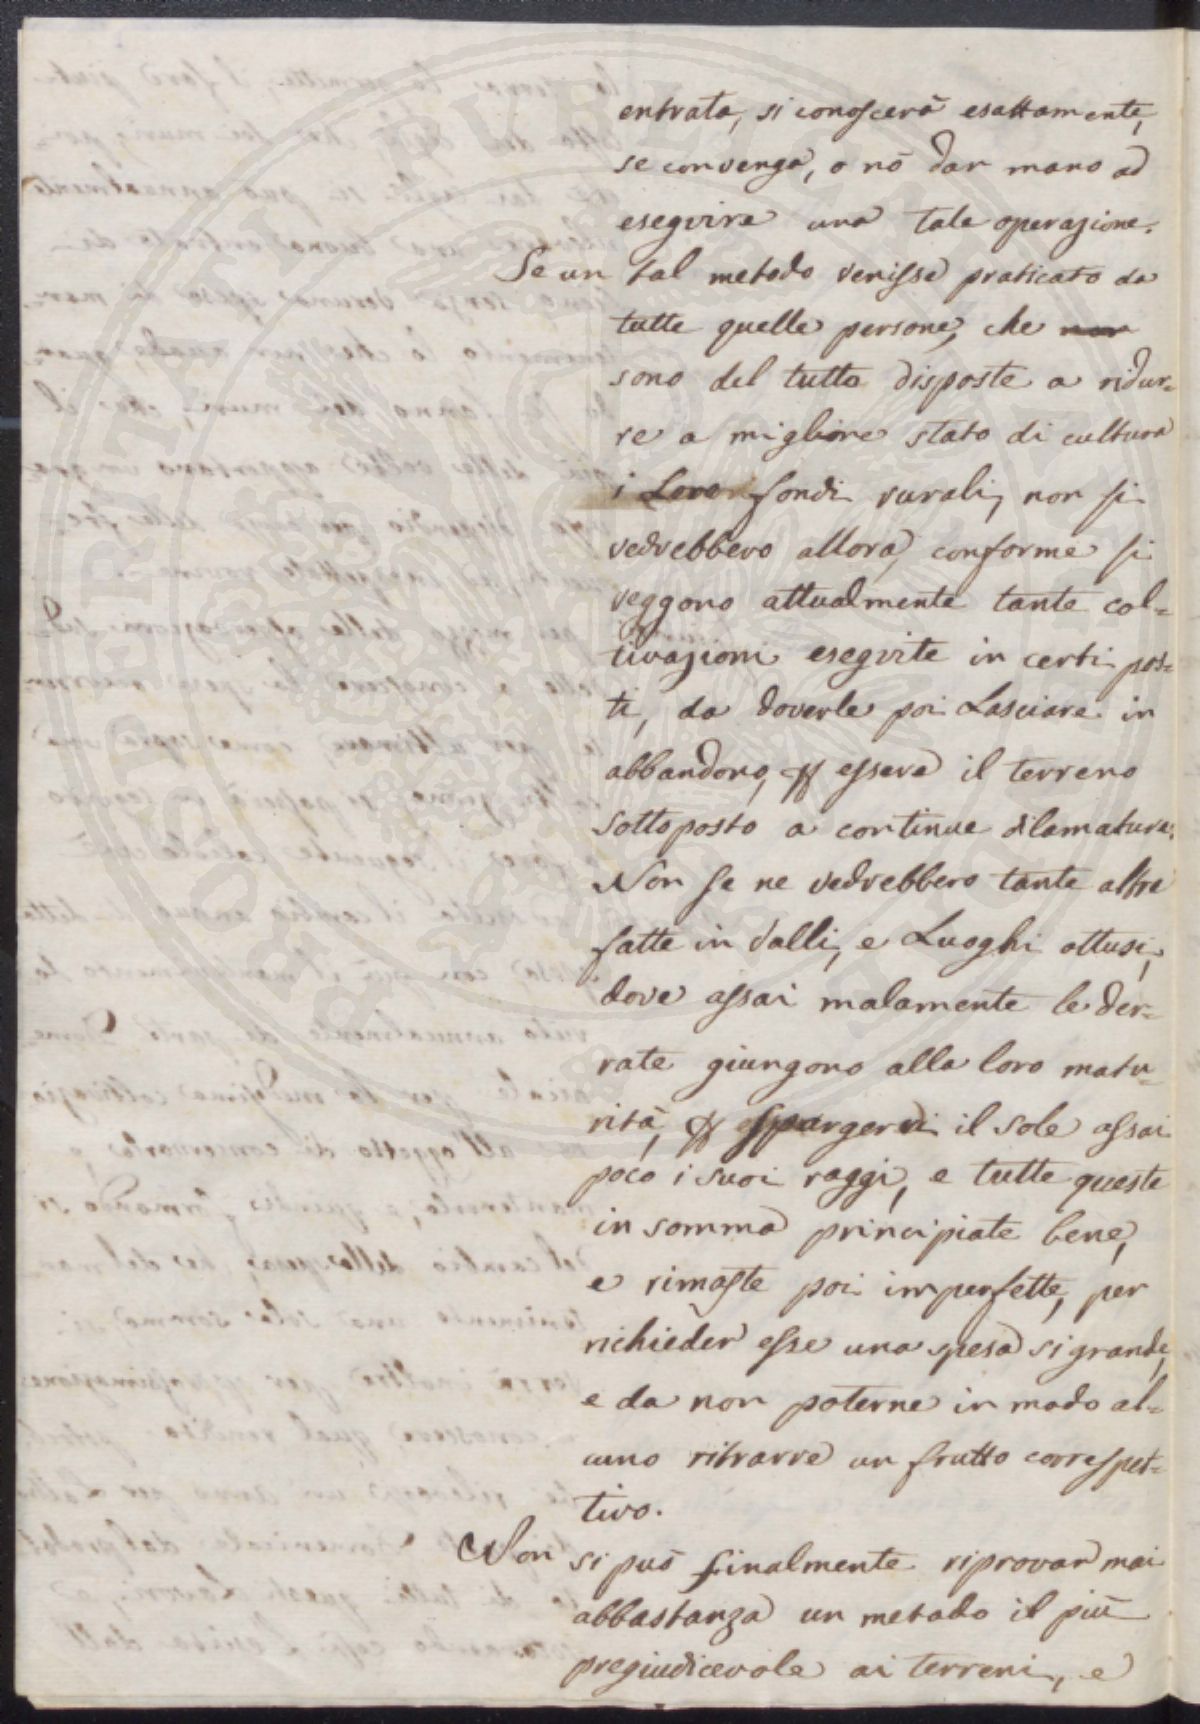 entrata, si conoscerà esattamente,
se convenga, o nò dar mano ad
eseguire una tale operazione.
Se un tal metodo venisse praticato da
tutte quelle persone, che non
sono del tutto disposte a ridur=
re a migliore stato di cultura
i Loro fondi rurali, non si
vedrebbero allora, conforme si
veggono attualmente tante col=
tivazioni eseguite in certi pos=
ti, da doverle poi Lasciare in
abbandono, essere il terreno
sottoposto a continue dilamature.
Non se ne vedrebbero tante altre
fatte in Valli, e Luoghi ottusi,
dove assai malamente le der=
rate giungono alla loro matu=
rità, spargervi il Sole assai
poco i suoi raggi, e tutte queste
in somma principiate bene,
e rimaste poi imperfette, per
richieder esse una spesa si grande,
e da non poterne in modo al=
cuno ritrarre un frutto correspet=
tivo.
Non si può finalmente riprovar mai
abbastanza un metodo il più
pregiudicevole ai terreni, e